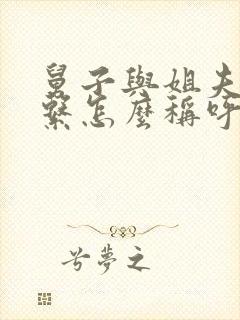 舅子與姐夫
繫怎麼稱呼
兮夢之